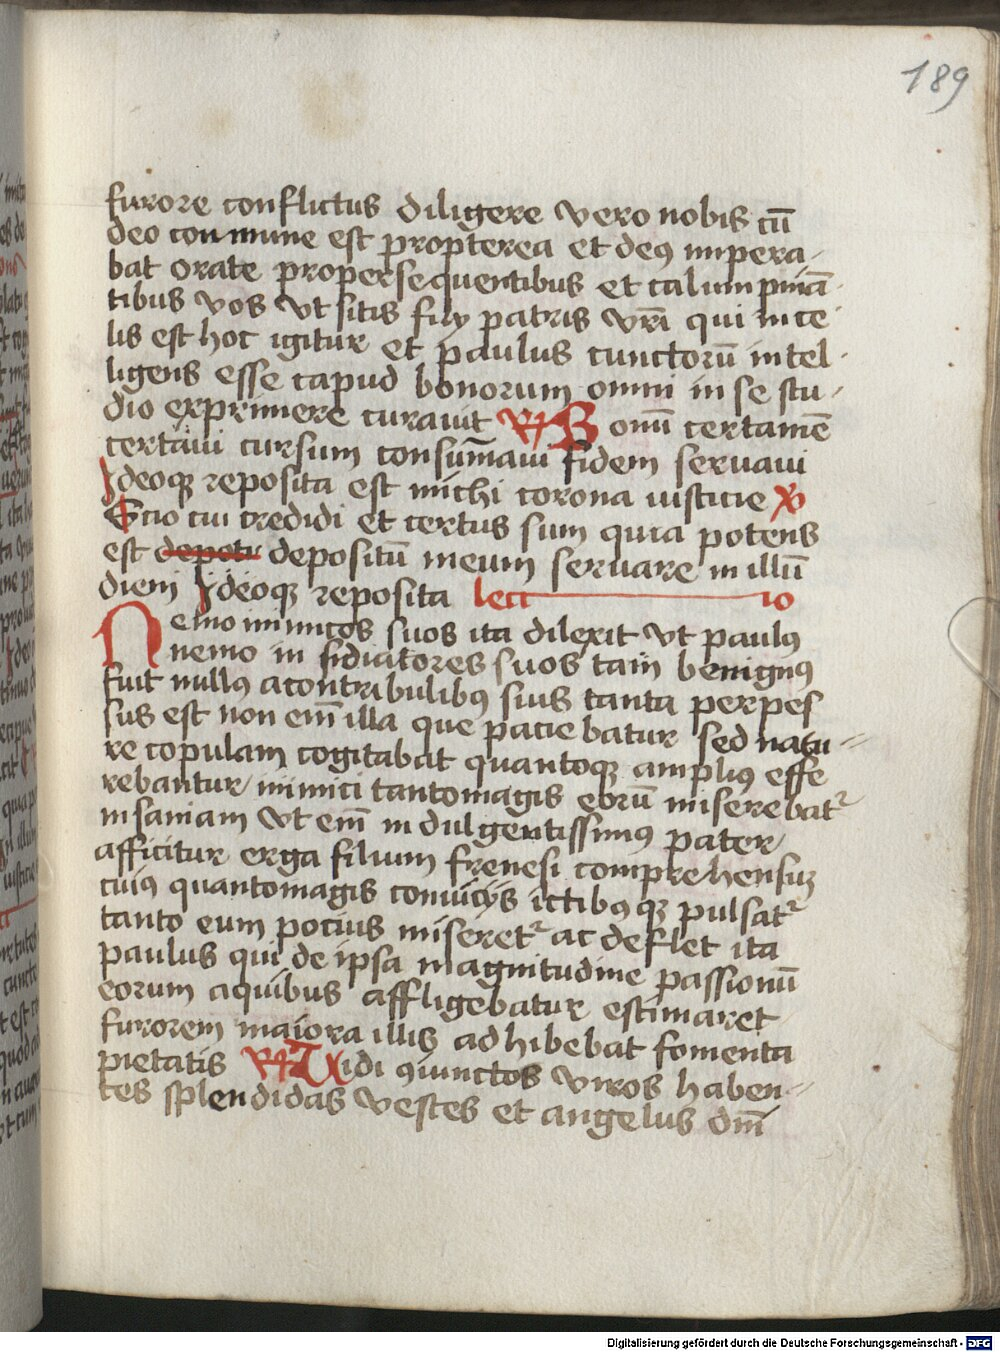 189
furore conflictus diligere vero nobis cū
deo conmune est propterea et deus impera-
bat orate propersequentibus et calumpniā-
tibus vos vt sitis filij patris vr̄i qui in ce-
lis est hoc igitur et paulus cunctorū intel-
ligens esse capud bonorum omni in se stu-
dio exprimere curauit R Bonū certamē
certaui cursum consum̄aui fidem seruaui
Jdeoqꝫ reposita est michi corona iusticie V
Scio cui credidi et certus sum quia potens
est depotu depositū meum seruare in illū
diem Jdeoqꝫ reposita lectio
Nemo inimicos suos ita dilexit vt paulꝰ
nemo in sidiatores suos tam benignꝰ
fuit nullꝰ acontribulibꝰ suis tanta perpes
sus est non em̄ illa que pacie batur sed natu-
re copulam cogitabat quantoqꝫ ampliꝰ effe
rebantur inimici tantomagis eorū miserebatᷣ
insaniam vt em̄ indulgentissimꝰ pater
afficitur erga filium frenesi comprehensuꝫ
cuiꝰ quantomagis conuicijs ictibꝰ qꝫ pulsatᷣ
tanto eum pocius miseretᷣ ac deflet ita
paulus qui de ipsa magnitudine passionū
eorum aquibus affligebatur estimaret
furorem maiora illis adhibebat fomenta
pietatis R Uidi ꝯiunctos viros haben-
tes splendidas vestes et angelus dn̄i
Digitalisierung gefördert durch die Deutsche Forschungsgemeinschaft - DFG